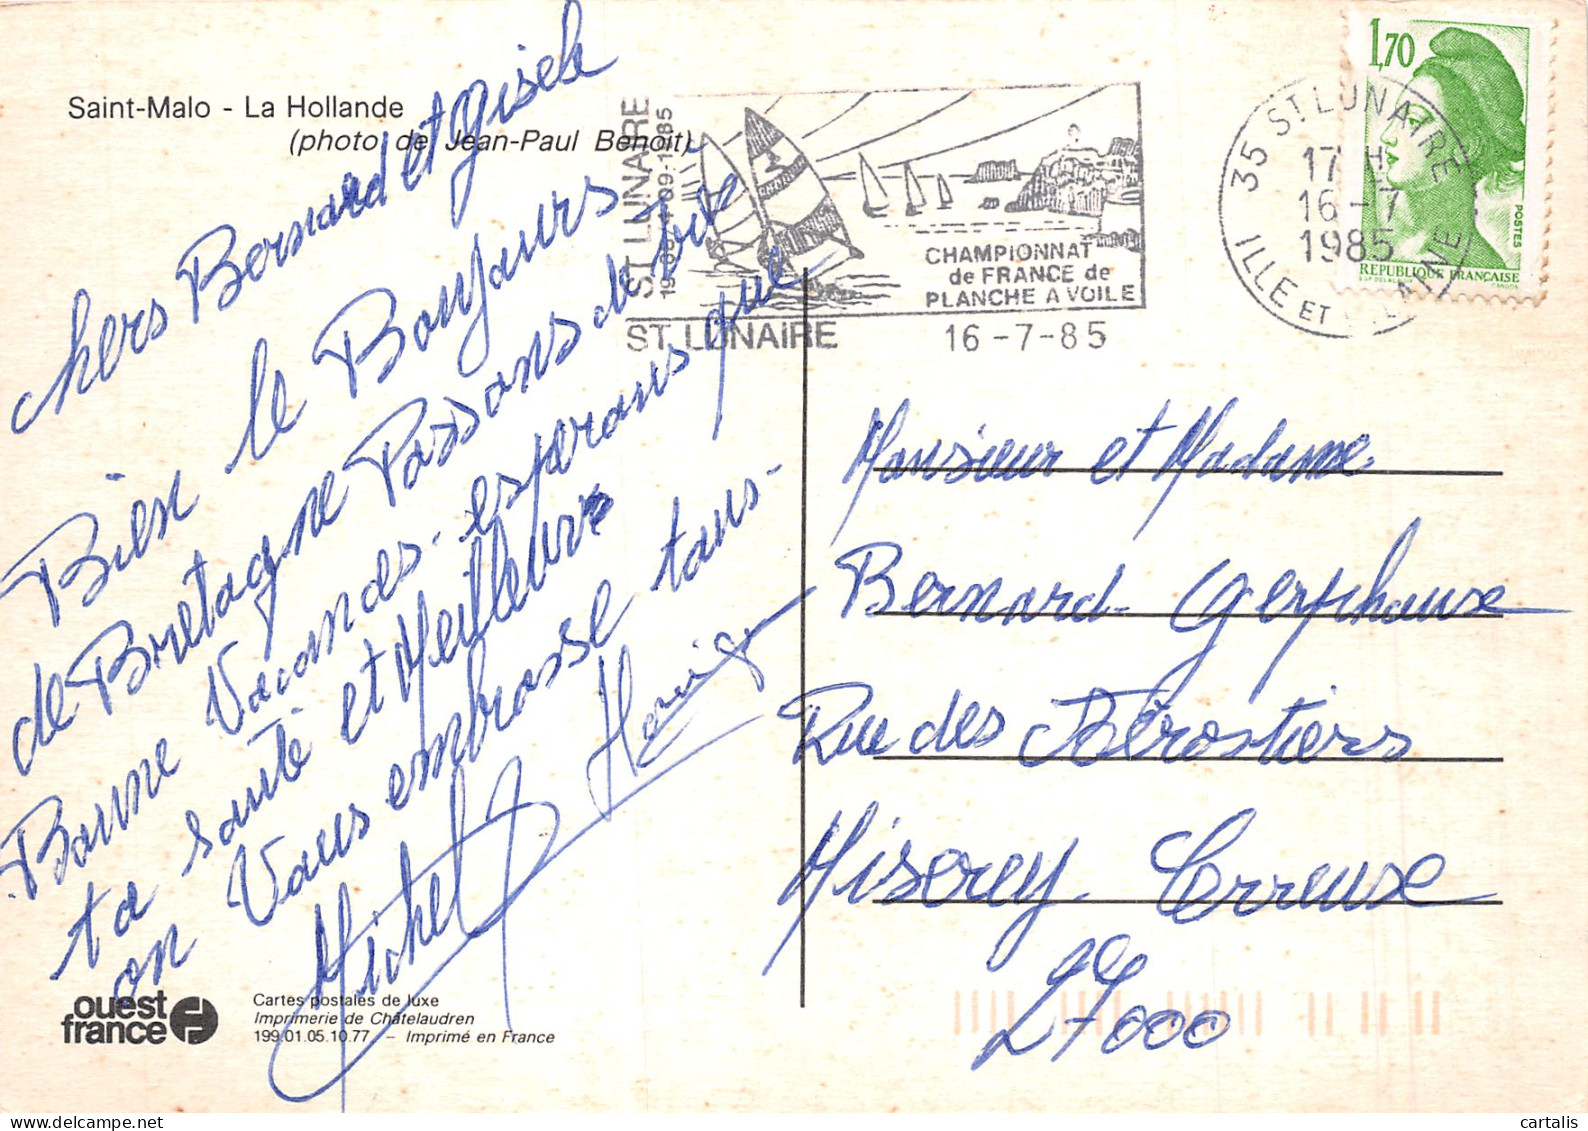 Saint-Malo - La Hollande
(photo de Jean-Paul Benoit)
chers Bernard et Gisele
Bien le Bonjours
de Bretagne Passons de
Bonne Vacances. esperons que
ta santé et Meilleur
on Vous embrasse tous.
Michel
ouest
france
Cartes postales de luxe
Imprimerie de Châtelaudren
199.01.05.10.77 - Imprimé en France
ST LUNAIRE
CHAMPIONNAT
de FRANCE de
PLANCHE A VOILE
ST. LUNAIRE
16-7-85
35 ST LUNAIRE
17 H
16-7
1985
ILLE ET VILAINE
1,70
POSTES
REPUBLIQUE FRANÇAISE
Monsieur et Madame
Bernard Gerphause
Rue des
Miserey Erreuse
27000
cartalis